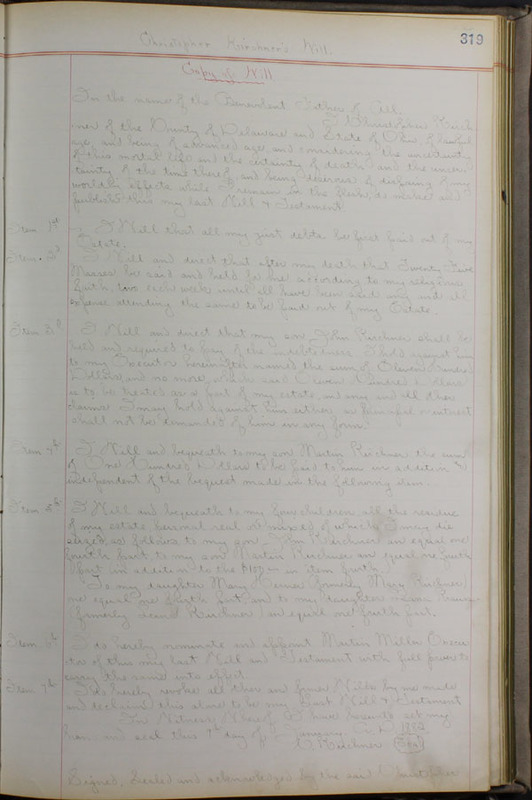 319
Christopher Kirshner's Will.
Copy of Will
In the name of the Benevolent Father of All.
I Christopher Kirsh
ner of the County of Delaware and State of Ohio, of lawful
age, and being of advanced age, and considering the uncertainty
of this mortal life and the certainty of death and the uncer
tainty of the time thereof, and being desirous of disposing of my
worldly effects while I remain in the flesh, do make and
publish this my last Will & Testament
Item 1st I Will that all my just debts be first paid out of my
Estate.
Item 2d I Will and direct that after my death that Twenty Five
Masses be said and held for me according to my religious
faith, two each week until all have been said and all
expense attending the same to be paid out of my Estate.
Item 3d I Will and direct that my son John Kirchner shall be
held and required to pay of the indebtedness I hold against him
to my Executor hereinafter named the sum of Eleven Hundred
Dollars and no more, which said Eleven Hundred Dollars
is to be treated as a part of my estate, and any and all other
claims I may hold against him either
shall not be demanded of him in any form.
Item 4th I Will and bequeath to my son Martin Kirchner the sum
of One Hundred Dollars to be paid to him in addition &
independent of the bequest made in the following item.
Item 5th I Will and bequeath to my four children all the residue
of my estate personal real or mixed of which I may die
seized, as follows, to my son John Kirchner an equal one
fourth part to my son Martin Kirchner an equal one fourth
part in addition to the $100 in item fourth.
To my daughter Mary (formerly Mary Kirchner)
one equal one fourth part and to my daughter
(formerly Kirchner) an equal one fourth part.
Item 6th I do hereby nominate and appoint Martin Miller Execu
tor of this my last Will and Testament with full power to
carry the same into effect.
Item 7th I do hereby revoke all other and former Wills by me made
and declare this alone to be my Last Will & Testament
In Witness Whereof I have hereunto set my
hand and seal this 7th day of January A.D. 1882
C. Kirchner (Seal)
Signed, Sealed and acknowledged by the said Christopher